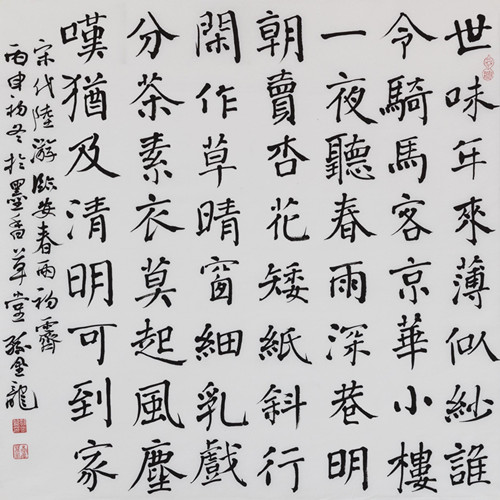 世味年來薄似紗誰
令騎馬客京華小樓
一夜聽春雨深巷明
朝賣杏花矮紙斜行
閑作草晴窗細乳戲
分茶素衣莫起風塵
嘆猶及清明可到家
宋代陸游臨安春雨初霽
丙申初冬於墨香草堂孫金龍